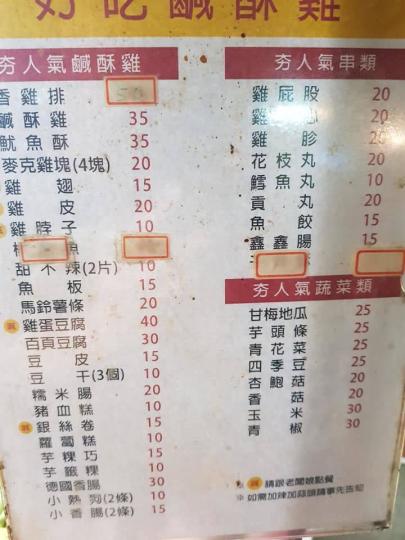 好吃鹹酥雞
夯人氣鹹酥雞
香雞排 50
鹹酥雞 35
魷魚酥 35
麥克雞塊(4塊) 20
雞翅 15
雞皮 20
雞脖子 10
魚
甜不辣(2片) 10
魚板 15
馬鈴薯條 20
雞蛋豆腐 40
百頁豆腐 30
豆皮 15
豆干(3個) 10
糯米腸 20
豬血糕 10
銀絲卷 15
蘿蔔糕 10
芋粿巧 15
芋籤粿 10
德國香腸 30
小熱狗(2條) 10
小香腸(2條) 15
夯人氣串類
雞屁股 20
雞心 20
雞胗 20
花枝丸 20
鱈魚丸 15
貢丸 20
魚餃 15
鑫鑫腸 15
夯人氣蔬菜類
甘梅地瓜 25
芋頭條 25
青花菜 25
四季豆 25
杏鮑菇 20
香菇 20
玉米 30
青椒 30
請跟老闆娘點餐
※如需加辣加蒜頭請事先告知